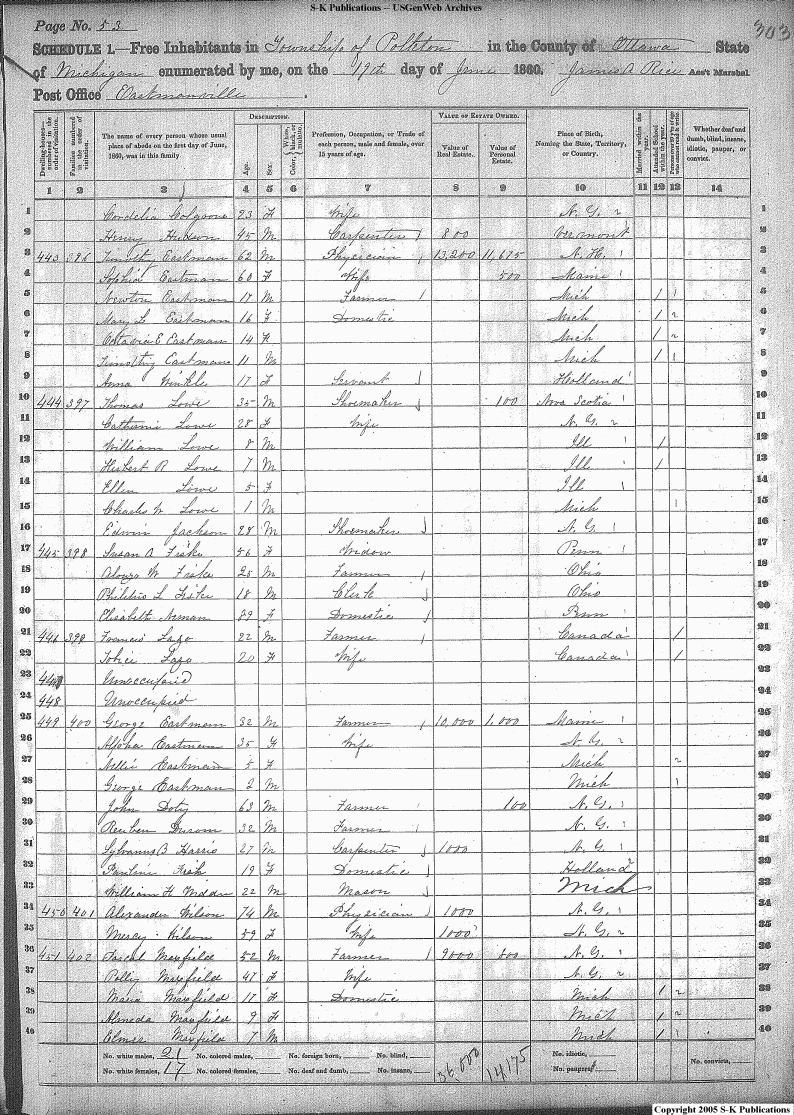 S-K Publications – USGenWeb Archives
Page No. 53
303
SCHEDULE 1.—Free Inhabitants in Township of Polkton in the County of Ottawa State
of Michigan enumerated by me, on the 19th day of June 1860. James A Rice Ass't Marshal
Post Office Eastmanville.
Dwelling-houses—numbered in the order of visitation.
Families numbered in the order of visitation.
The name of every person whose usual place of abode on the first day of June, 1860, was in this family
DESCRIPTION.
Age.
Sex.
Color, White, black, or mulatto.
Profession, Occupation, or Trade of each person, male and female, over 15 years of age.
VALUE OF ESTATE OWNED.
Value of Real Estate.
Value of Personal Estate.
Place of Birth, Naming the State, Territory, or Country.
Married within the year.
Attended School within the year.
Whether deaf and dumb, blind, insane, idiotic, pauper, or convict.
1 2 3 4 5 6 7 8 9 10 11 12 13 14
1 Cordelia 23 F Wife N.Y. 1
2 Henry Hudson 45 M Carpenter 800 Vermont 2
3 443 396 Timothy Eastman 62 M Physician 13,200 11,675 N.H. 3
4 Sophia Eastman 60 F Wife 500 Maine 4
5 Newton Eastman 17 M Farmer Mich 1 5
6 Mary L Eastman 16 F Domestic Mich 1 6
7 Octavia E Eastman 14 F Mich 1 7
8 Timothy Eastman 11 M Mich 1 8
9 Anna Winkle 17 F Servant Holland 9
10 444 397 Thomas Lowe 35 M Shoemaker 100 Nova Scotia 10
11 Catharine Lowe 28 F Wife N.Y. 11
12 William Lowe 8 M Ill 1 12
13 Herbert R Lowe 7 M Ill 1 13
14 Ellen Lowe 5 F Ill 14
15 Charles W Lowe 1 M Mich 15
16 Edwin Jackson 28 M Shoemaker N.Y. 16
17 445 398 Susan A Fiske 56 F Widow Penn 17
18 Alonzo W Fiske 25 M Farmer Ohio 18
19 Philetus L Fiske 18 M Clerk Ohio 19
20 Elisabeth 89 F Domestic Penn 20
21 446 399 Francis Lazo 22 M Farmer Canada 1 21
22 Lazo 20 F Wife Canada 1 22
23 447 Unoccupied 23
24 448 Unoccupied 24
25 449 400 George Eastman 32 M Farmer 10,000 1,000 Maine 25
26 Alpha Eastman 35 F Wife N.Y. 26
27 Nellie Eastman 5 F Mich 27
28 George Eastman 2 M Mich 28
29 John Doty 63 M Farmer 100 N.Y. 29
30 Reuben 32 M Farmer N.Y. 30
31 Sylvanus B Harris 27 M Carpenter 1000 N.Y. 31
32 Pauline 19 F Domestic Holland 32
33 William H 22 M Mason Mich 33
34 450 401 Alexander Wilson 74 M Physician 1000 N.Y. 34
35 Mercy Wilson 59 F Wife 1000 N.Y. 35
36 451 402 Mayfield 52 M Farmer 9000 800 N.Y. 36
37 Polly Mayfield 47 F Wife N.Y. 37
38 Maria Mayfield 17 F Domestic Mich 1 38
39 Almeda Mayfield 9 F Mich 1 39
40 Elmer Mayfield 7 M Mich 1 40
No. white males, 21 No. colored males, No. foreign born, No. blind, 36,000 14,175 No. idiotic,
No. white females, 17 No. colored females, No. deaf and dumb, No. insane, No. paupers, No. convicts,
Copyright 2005 S-K Publications